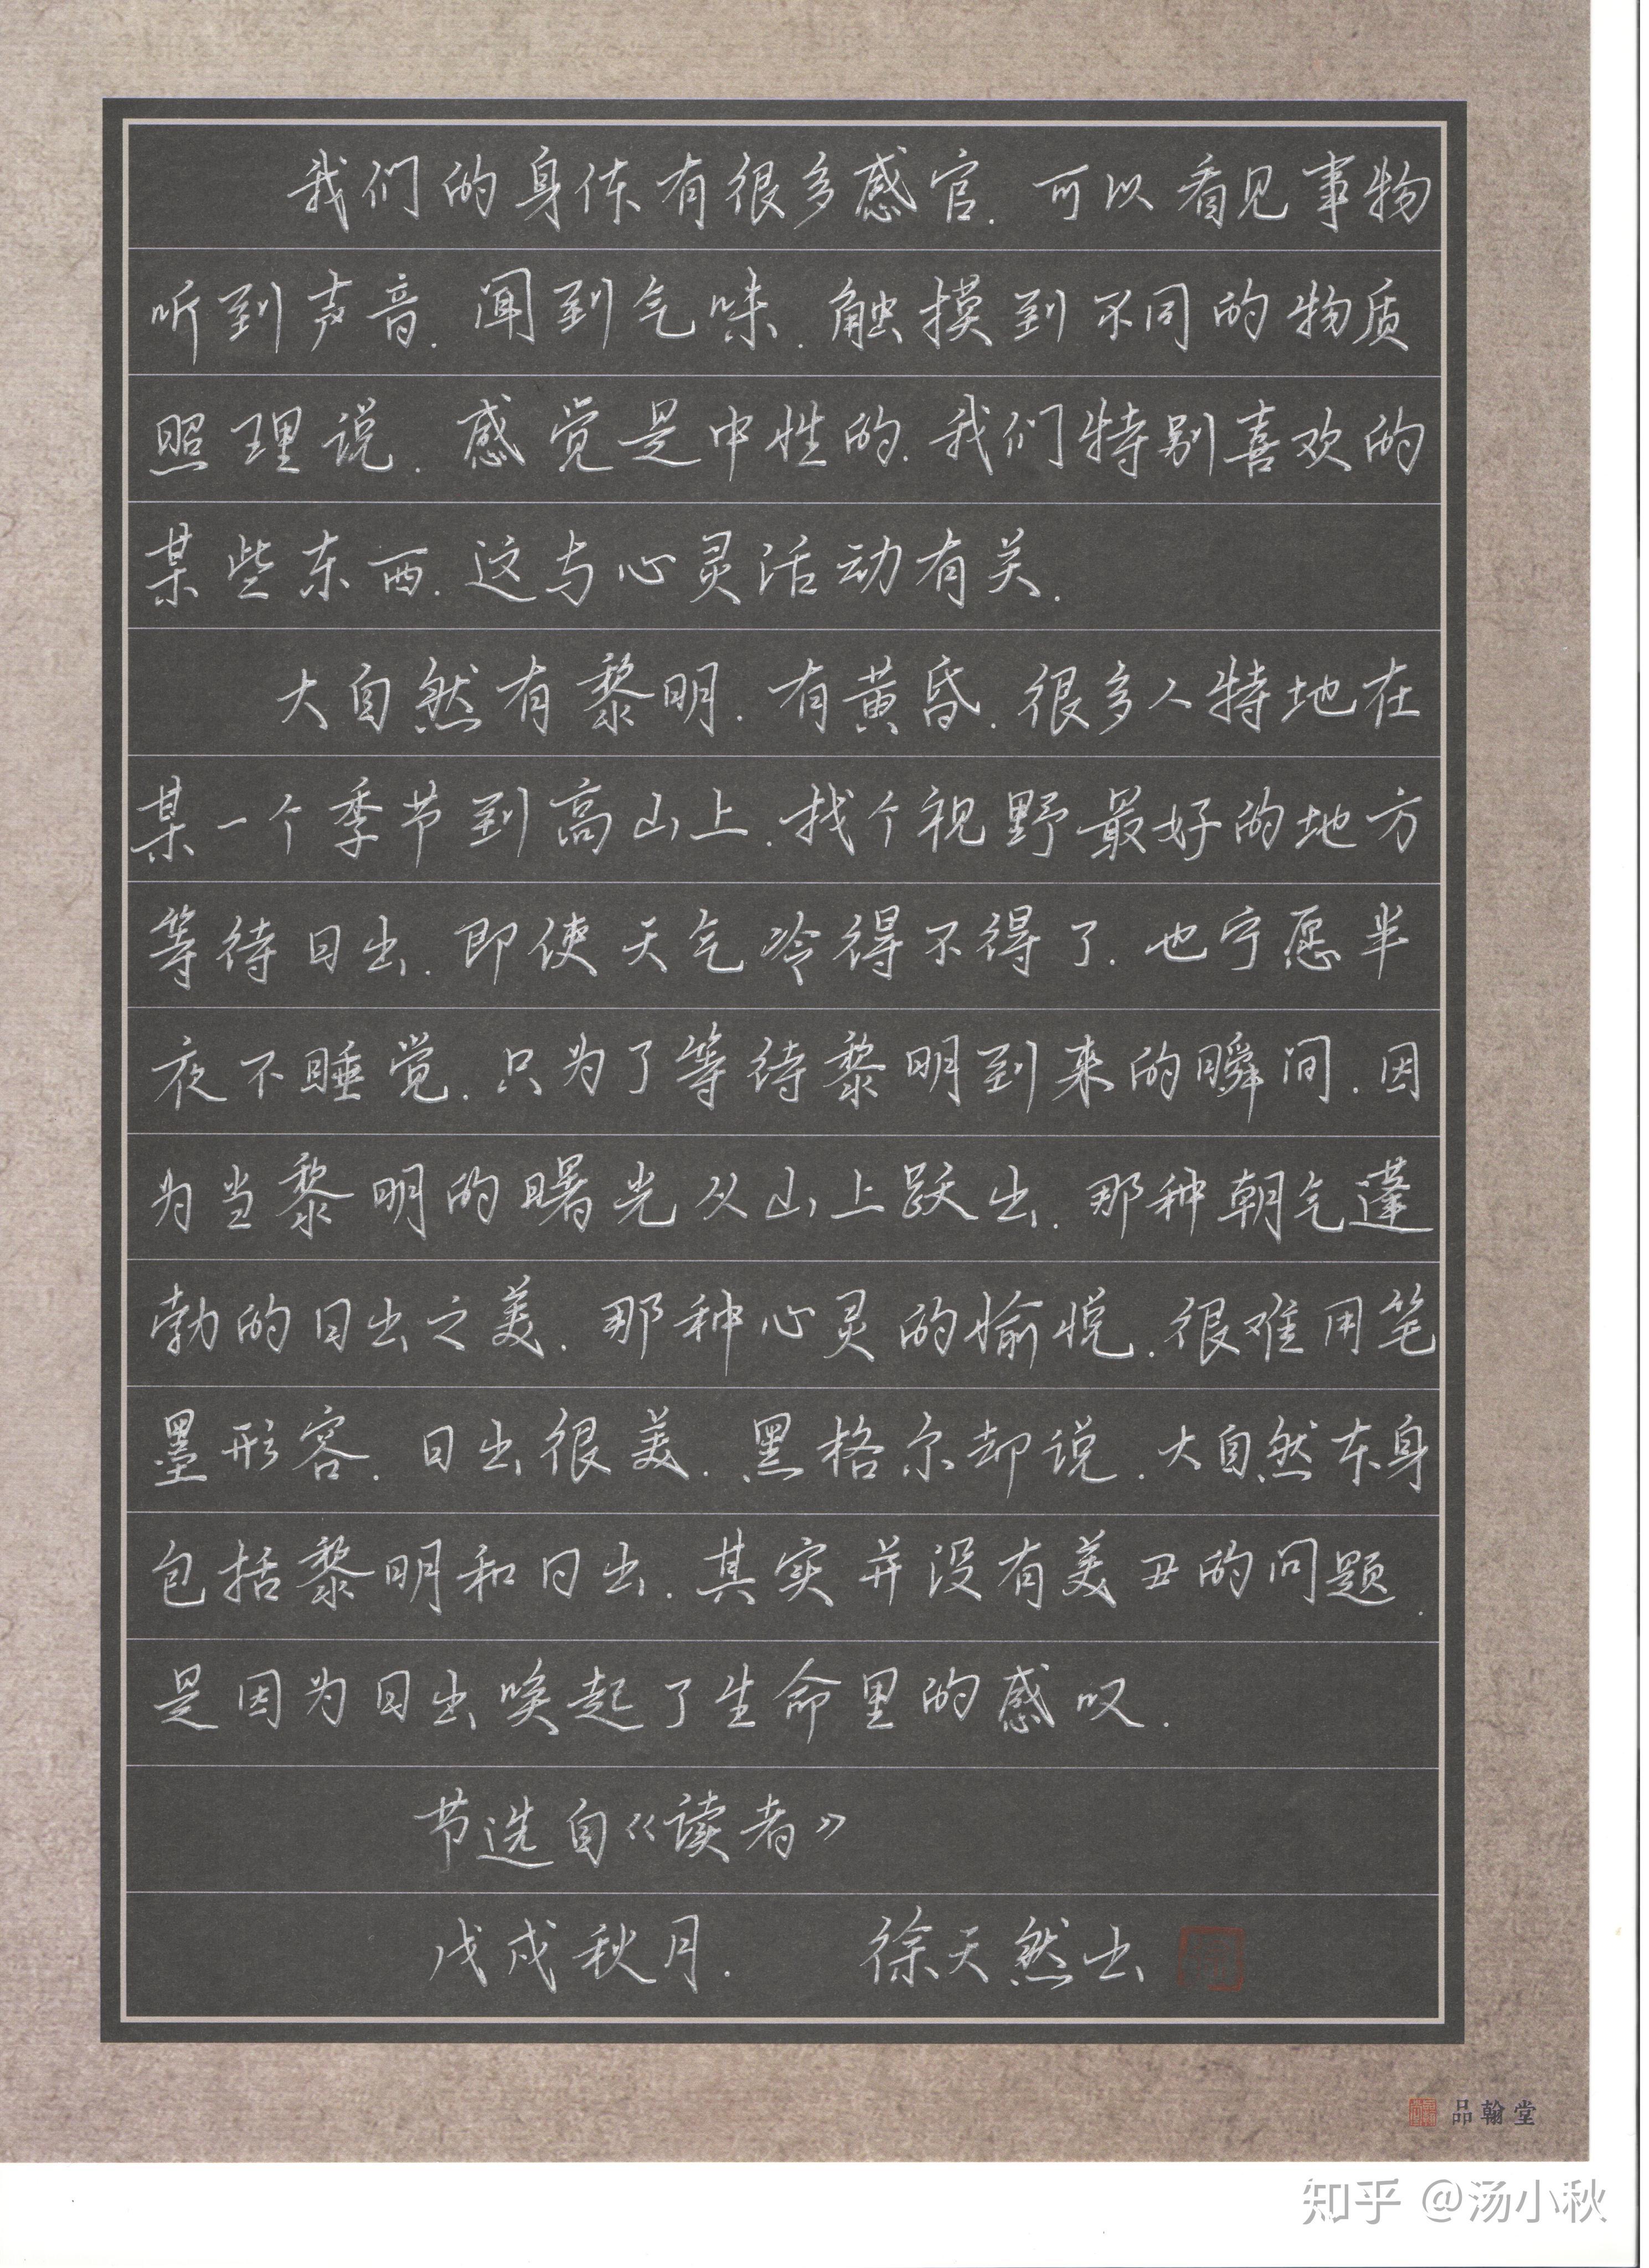 我们的身体有很多感官.可以看见事物
听到声音.闻到气味.触摸到不同的物质
照理说.感觉是中性的.我们特别喜欢的
某些东西.这与心灵活动有关.
大自然有黎明.有黄昏.很多人特地在
某一个季节到高山上.找个视野最好的地方
等待日出.即使天气冷得不得了.也宁愿半
夜不睡觉.只为了等待黎明到来的瞬间.因
为当黎明的曙光从山上跃出.那种朝气蓬
勃的日出之美.那种心灵的愉悦.很难用笔
墨形容.日出很美.黑格尔却说.大自然本身
包括黎明和日出.其实并没有美丑的问题.
是因为日出唤起了生命里的感叹.
节选自《读者》
戊戌秋月. 徐天然书
品翰堂
知乎 @汤小秋